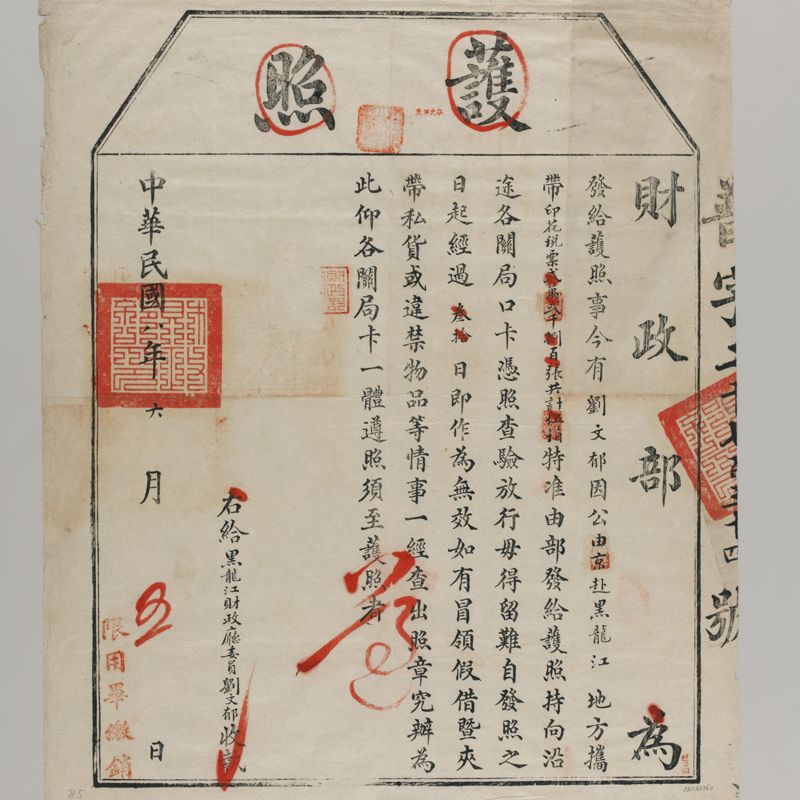 護照
財政部為
發給護照事今有劉文郁因公由京赴黑龍江地方攜
帶印花稅票貳萬貳千捌百張共計伍箱特准由部發給護照持向沿
途各關局口卡憑照查驗放行毋得留難自發照之
日起經過叁拾日即作為無效如有冒領假借暨夾
帶私貨或違禁物品等情事一經查出照章究辦為
此仰各關局卡一體遵照須至護照者
右給黑龍江財政廳委員劉文郁收執
中華民國八年六月五日
限用畢繳銷
財政部
85